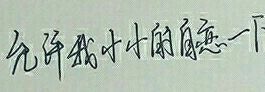 允许我小小的自恋一下